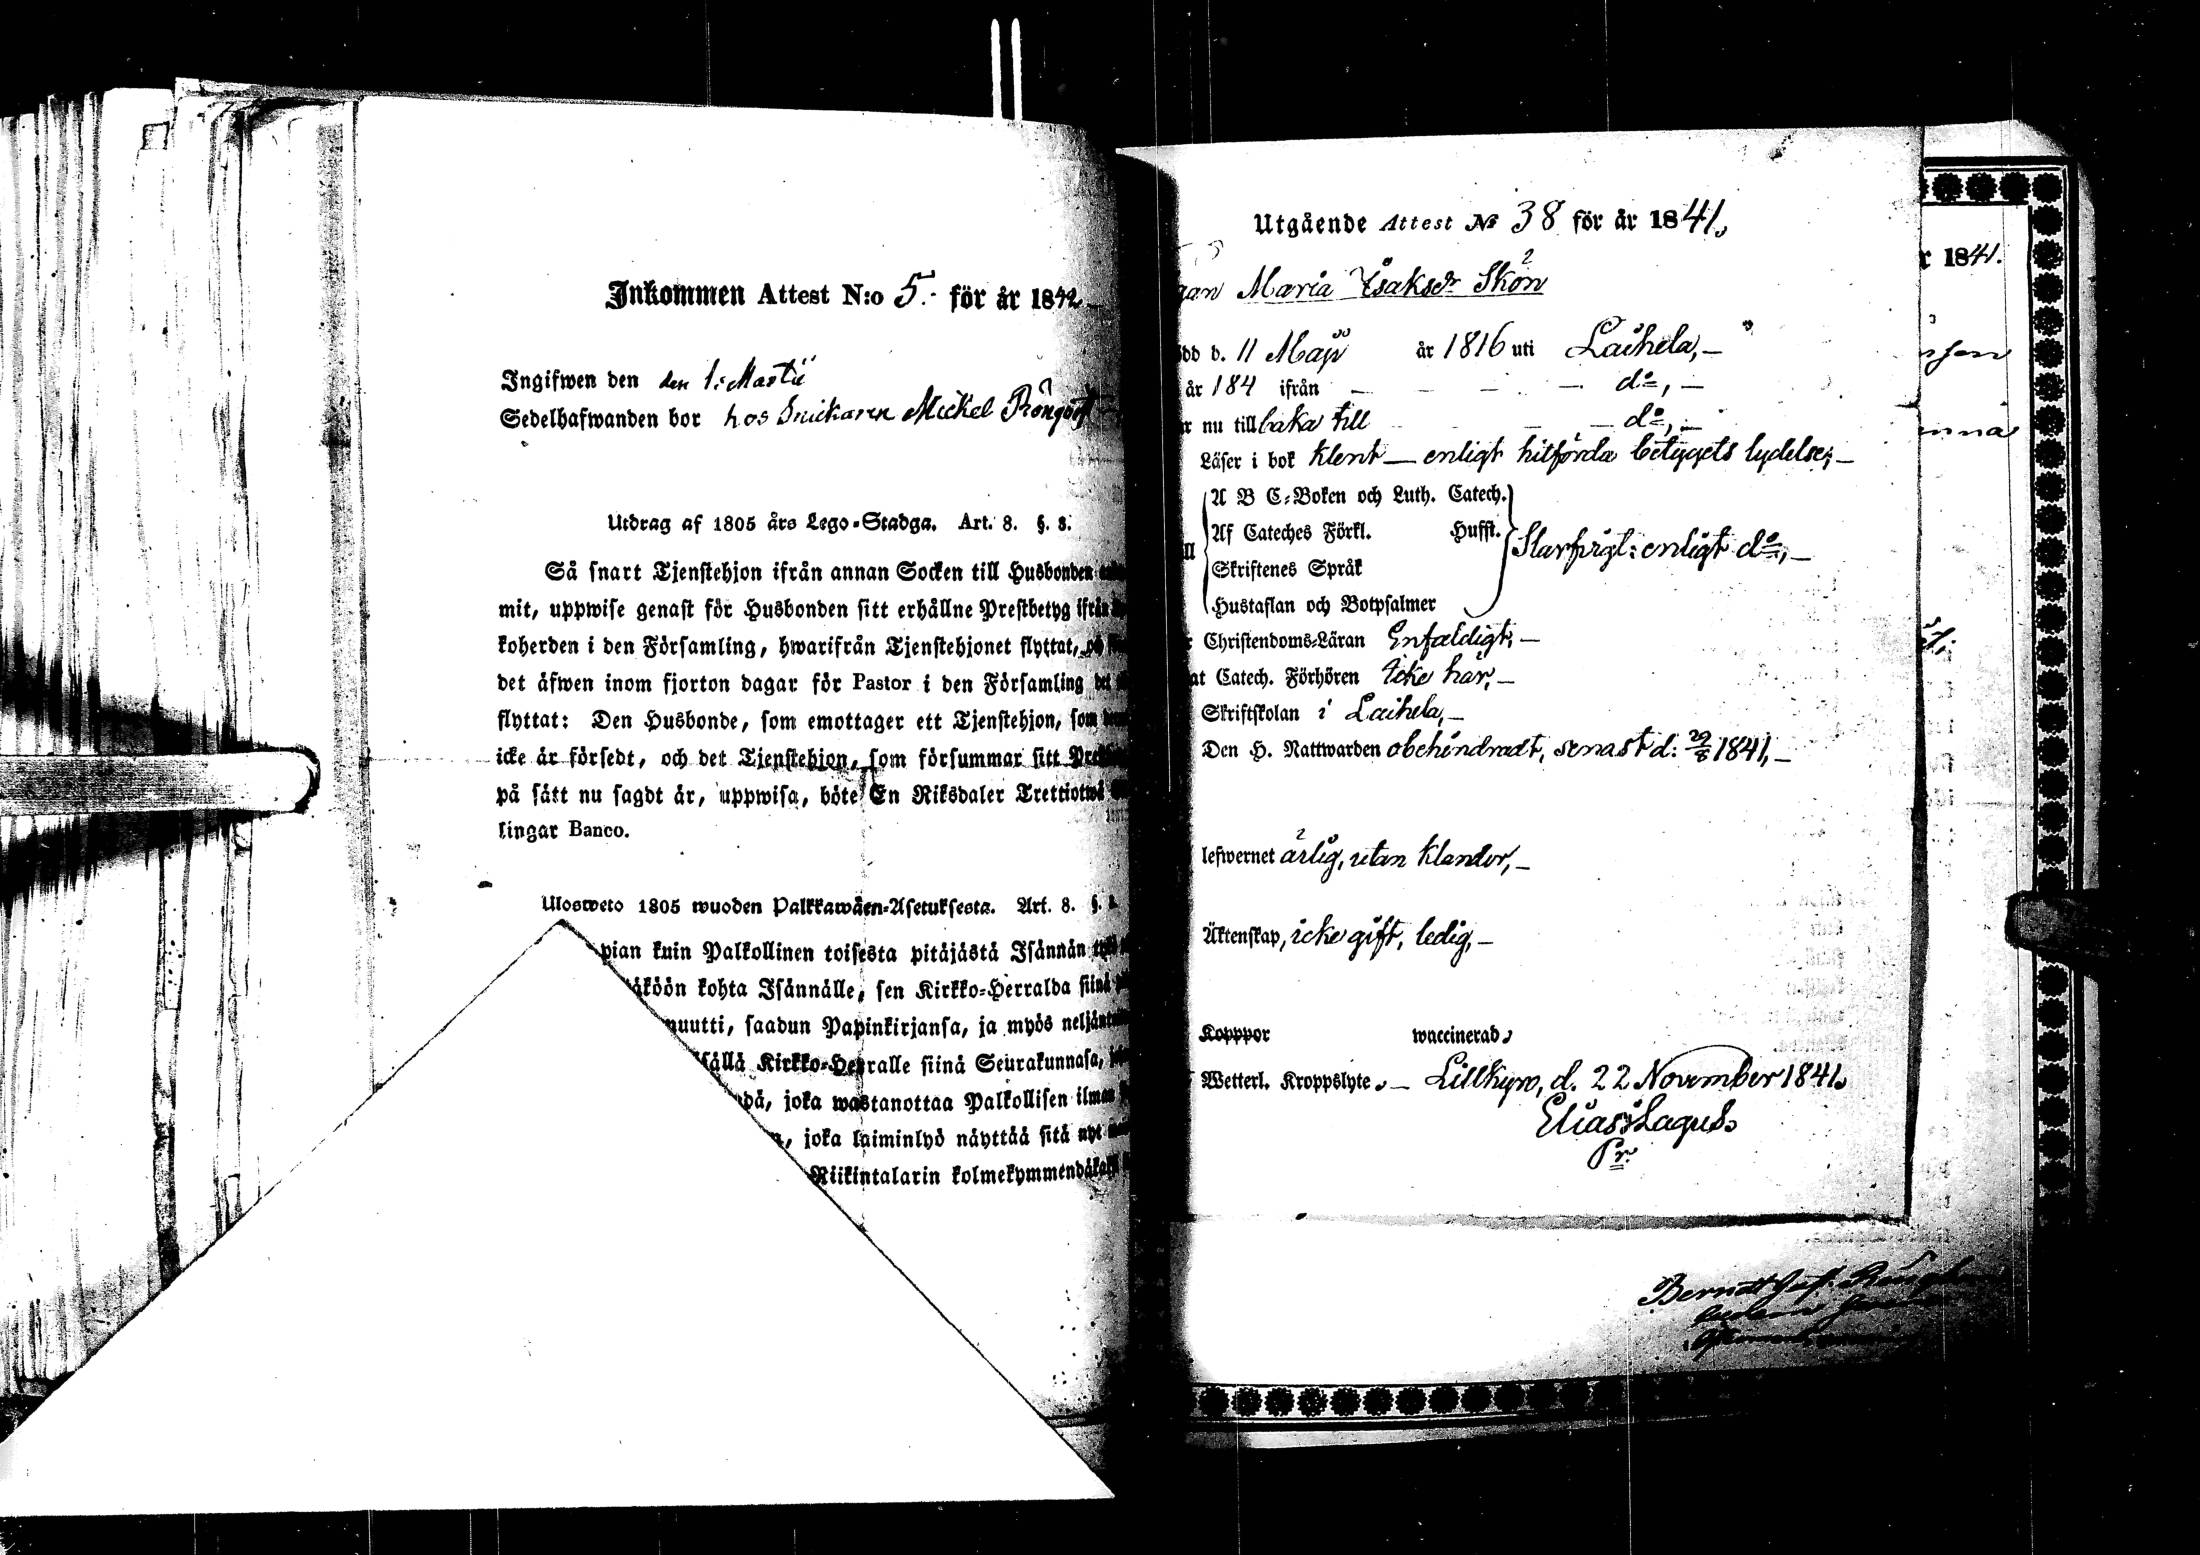 Inkommen Attest N:o 5. för år 1842
Ingifwen den den 1: Martii
Sedelhafwanden bor hos Snickaren Mickel
Utdrag af 1805 års Lego-Stadga. Art. 8. §. 8.
Så snart Tjenstehjon ifrån annan Socken till Husbonden
mit, uppwise genast för Husbonden sitt erhållne Prestbetyg ifrån
koherden i den Församling, hwarifrån Tjenstehjonet flyttat,
det äfwen inom fjorton dagar för Pastor i den Församling det
flyttat: Den Husbonde, som emottager ett Tjenstehjon, som
icke är försedt, och det Tjenstehjon, som försummar sitt
på sätt nu sagdt är, uppwisa, böte En Riksdaler Trettiotwå
lingar Banco.
Ulosweto 1805 wuoden Palkkawäen-Asetuksesta. Art. 8. §.
pian kuin Palkollinen toisesta pitäjästä Isännän
äköön kohta Isännälle, sen Kirkko-Herralda siinä
muutti, saadun Papinkirjansa, ja myös
sällä Kirkko-Herralle siinä Seurakunnasa,
dä, joka wastanottaa Palkollisen ilman
n, joka laiminlyö näyttää sitä nyt
Riikintalarin
Utgående Attest № 38 för år 1841.
gan Maria Isaksdr Skön
ödd d. 11 Maji år 1816 uti Laihela, —
år 184 ifrån — — — — do, —
r nu tillbaka till — — do, —
Läser i bok klent — enligt hitförda betygets lydelse; —
A B C-Boken och Luth. Catech.
Af Cateches Förkl. Husst.
Skriftenes Språk
Hustaflan och Botpsalmer
enligt do, —
Christendoms-Läran Enfaldigt, —
at Catech. Förhören Icke här, —
Skriftskolan i Laihela, —
Den H. Nattwarden obehindradt, senast d: 29/8 1841, —
lefwernet ärlig, utan klander, —
Äktenskap, icke gift, ledig, —
Kopppor waccinerad.
Wetterl. Kroppslyte. — Lillkyro, d. 22 November 1841.
Elias Lagus.
Pr.
r 1841.
nna